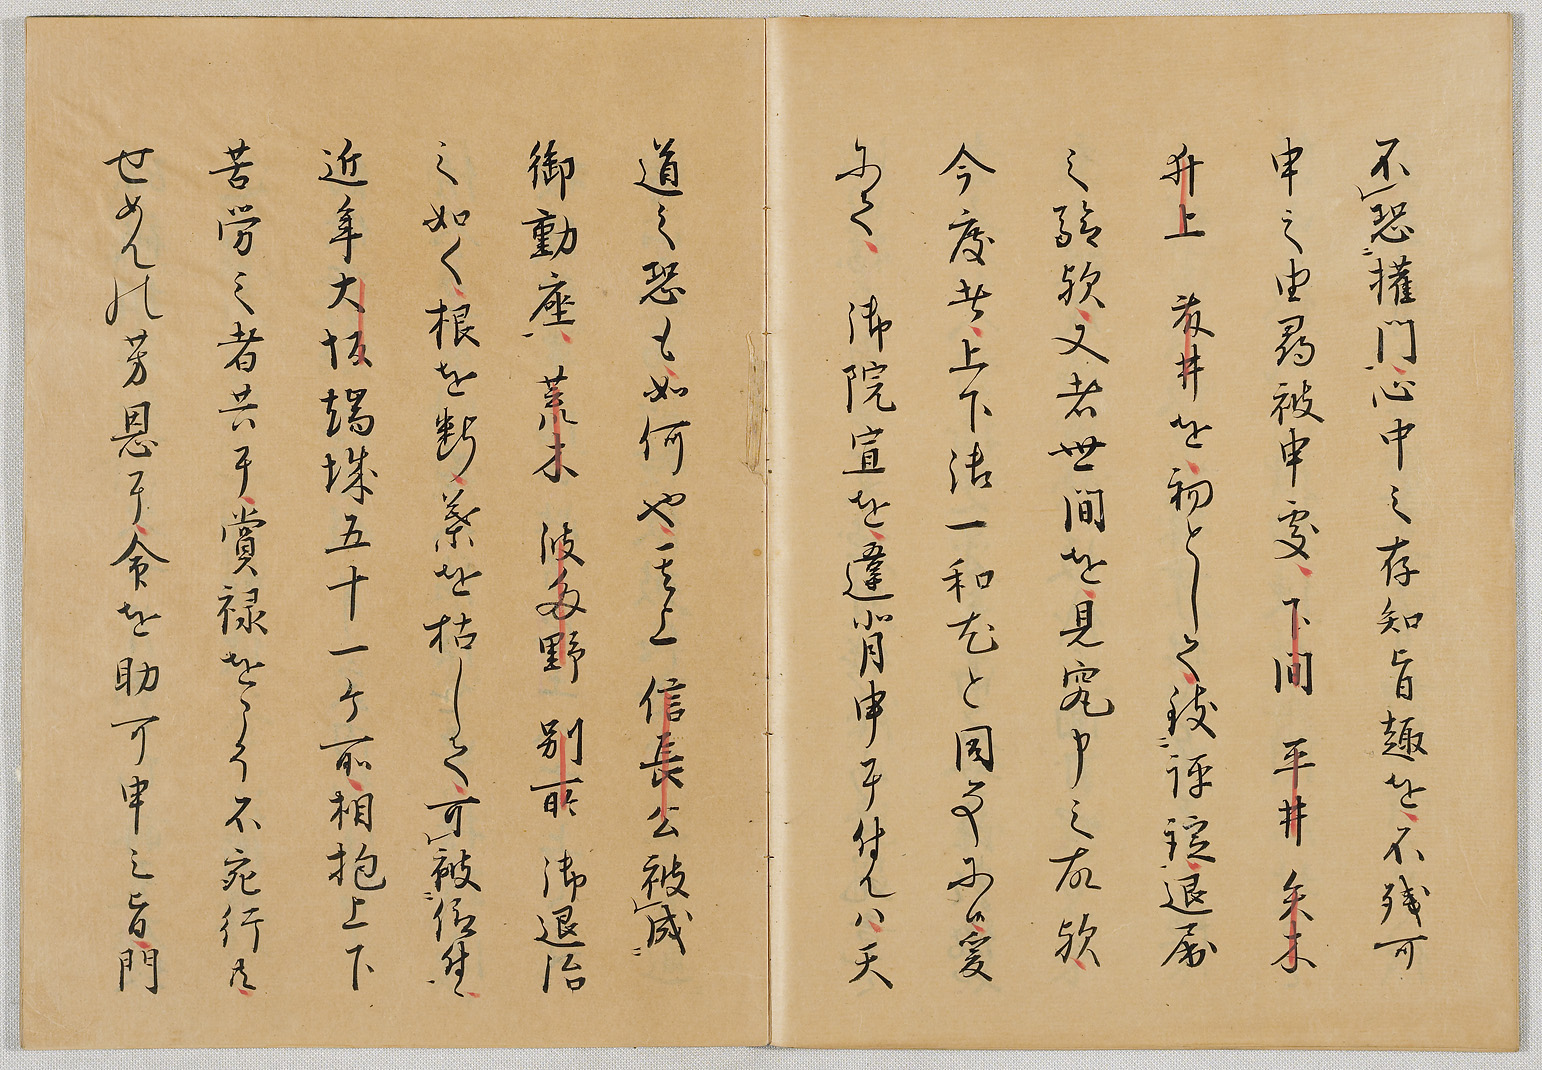 不恐権門心中之存知旨趣を不残可
申之由尋被申処下間 平井 矢木
井上 藤井を初として数評諚退屈
之験歟又者世間を見究申之故歟
今度者上下諸一和尤と同事に候爰
にて 御院宣を違背申于付んハ天
道之恐も如何や其上 信長公被成
御動座荒木 波多野 別所 御退治
之如く根を断葉を枯して可被仰付
近年大坂端城五十一ケ所相抱上下
苦労之者共于賞禄をこそ不宛行共
せめんの芳恩于命を助可申之旨門